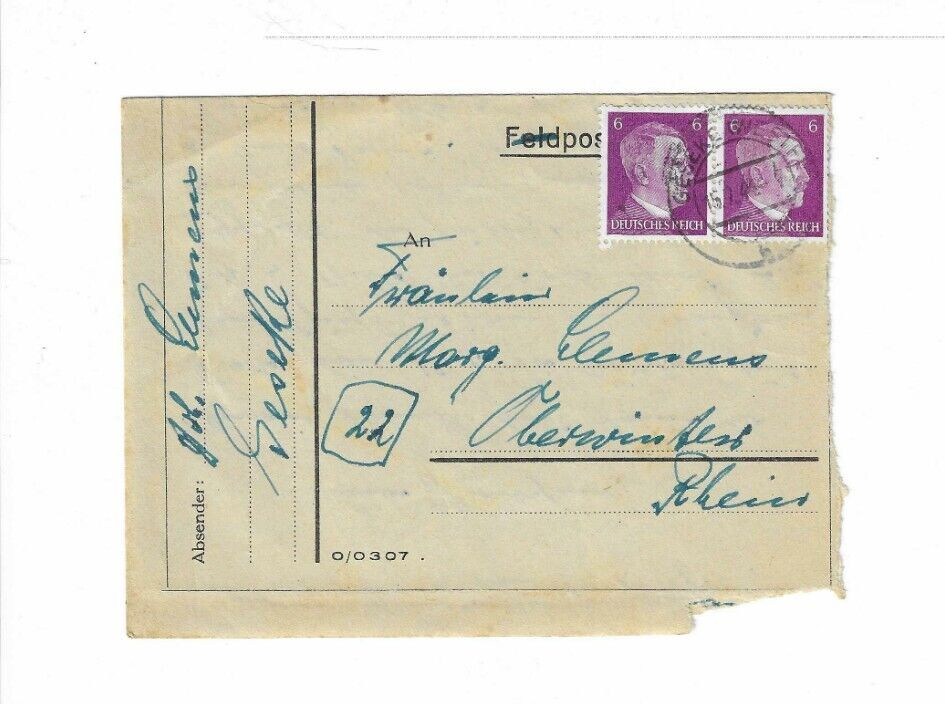 Feldpos
6
DEUTSCHES REICH
6 6
DEUTSCHES REICH
An
Fräulein
Marg. Clemens
22
Oberwinter
Rhein
Absender:
Clemens
Geseke
0/0307.